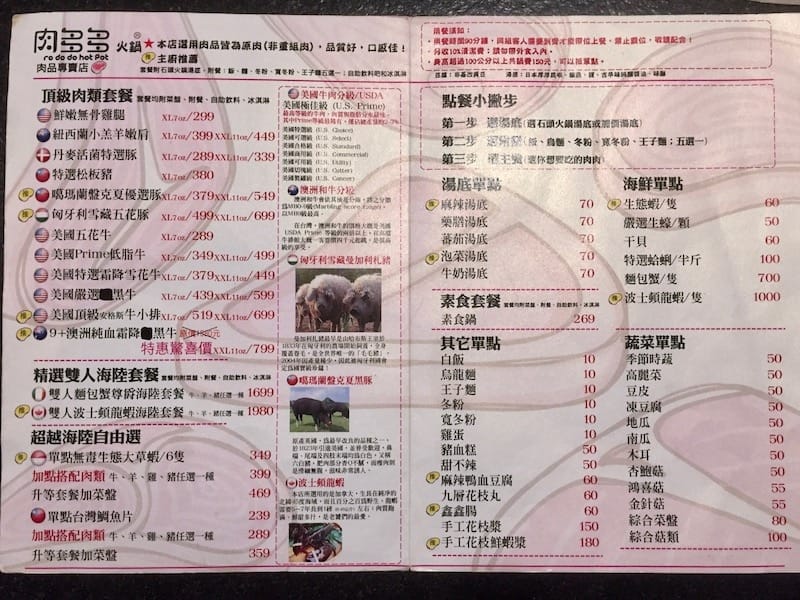 肉多多 火鍋
ro do do hot Pot
肉品專賣店
★本店選用肉品皆為原肉(非重組肉)，品質好，口感佳！
推 主廚推薦
套餐附石頭火鍋湯底，附餐：飯、麵、冬粉、寬冬粉、王子麵五選一；自助飲料吧和冰淇淋
頂級肉類套餐 套餐均附菜盤、附餐、自助飲料、冰淇淋
鮮嫩無骨雞腿 XL7oz/299
紐西蘭小羔羊嫩肩 XL7oz/399 XXL11oz/449
丹麥活菌特選豚 XL7oz/289 XXL11oz/339
特選松板豬 XL7oz/380
推 噶瑪蘭盤克夏優選豚 XL7oz/379 XXL11oz/549
推 匈牙利雪藏五花豚 XL7oz/499 XXL11oz/699
美國五花牛 XL7oz/289
美國Prime低脂牛 XL7oz/349 XXL11oz/499
美國特選霜降雪花牛 XL7oz/379 XXL11oz/449
美國嚴選黑牛 XL7oz/439 XXL11oz/599
推 美國頂級安格斯牛小排 XL7oz/519 XXL11oz/699
推 9+澳洲純血霜降黑牛
特惠驚喜價 XXL11oz/799
精選雙人海陸套餐 套餐均附菜盤、附餐、自助飲料、冰淇淋
雙人麵包蟹尊爵海陸套餐 牛、羊、豬任選一種 1699
推 雙人波士頓龍蝦海陸套餐 牛、羊、豬任選一種 1980
超越海陸自由選
推 單點無毒生態大草蝦/6隻 349
加點搭配肉類 牛、羊、雞、豬任選一種 399
升等套餐加菜盤 469
單點台灣鯛魚片 239
加點搭配肉類 牛、羊、雞、豬任選一種 289
升等套餐加菜盤 359
美國牛肉分級/USDA
美國極佳級 (U.S. Prime)
美國特選級 (U.S. Choice)
美國可選級 (U.S. Select)
美國合格級 (U.S. Standard)
美國商用級 (U.S. Commercial)
美國可用級 (U.S. Utility)
美國切塊級 (U.S. Cutter)
美國製罐級 (U.S. Canner)
澳洲和牛分級
匈牙利雪藏曼加利札豬
噶瑪蘭盤克夏黑豚
波士頓龍蝦
用餐須知：
點餐小撇步
第一步 選湯底 (選石頭火鍋湯底或加價湯底)
第二步 選附餐 (飯、烏麵、冬粉、寬冬粉、王子麵；五選一)
第三步 選主餐 (選你想要吃的肉肉)
湯底單點
推 麻辣湯底 70
藥膳湯底 70
蕃茄湯底 70
推 泡菜湯底 70
牛奶湯底 70
素食套餐 套餐均附菜盤、附餐、自助飲料、冰淇淋
素食鍋 269
其它單點
白飯 10
烏龍麵 10
王子麵 10
冬粉 10
寬冬粉 10
雞蛋 10
豬血糕 50
甜不辣 50
推 麻辣鴨血豆腐 60
九層花枝丸 60
推 鑫鑫腸 60
手工花枝漿 150
推 手工花枝鮮蝦漿 180
海鮮單點
推 生態蝦/隻 60
嚴選生蠔/顆 50
干貝 60
特選蛤蜊/半斤 100
麵包蟹/隻 700
推 波士頓龍蝦/隻 1000
蔬菜單點
季節時蔬 50
高麗菜 50
豆皮 50
凍豆腐 50
地瓜 50
南瓜 50
木耳 50
杏鮑菇 50
鴻喜菇 55
金針菇 55
綜合菜盤 80
綜合菇類 100